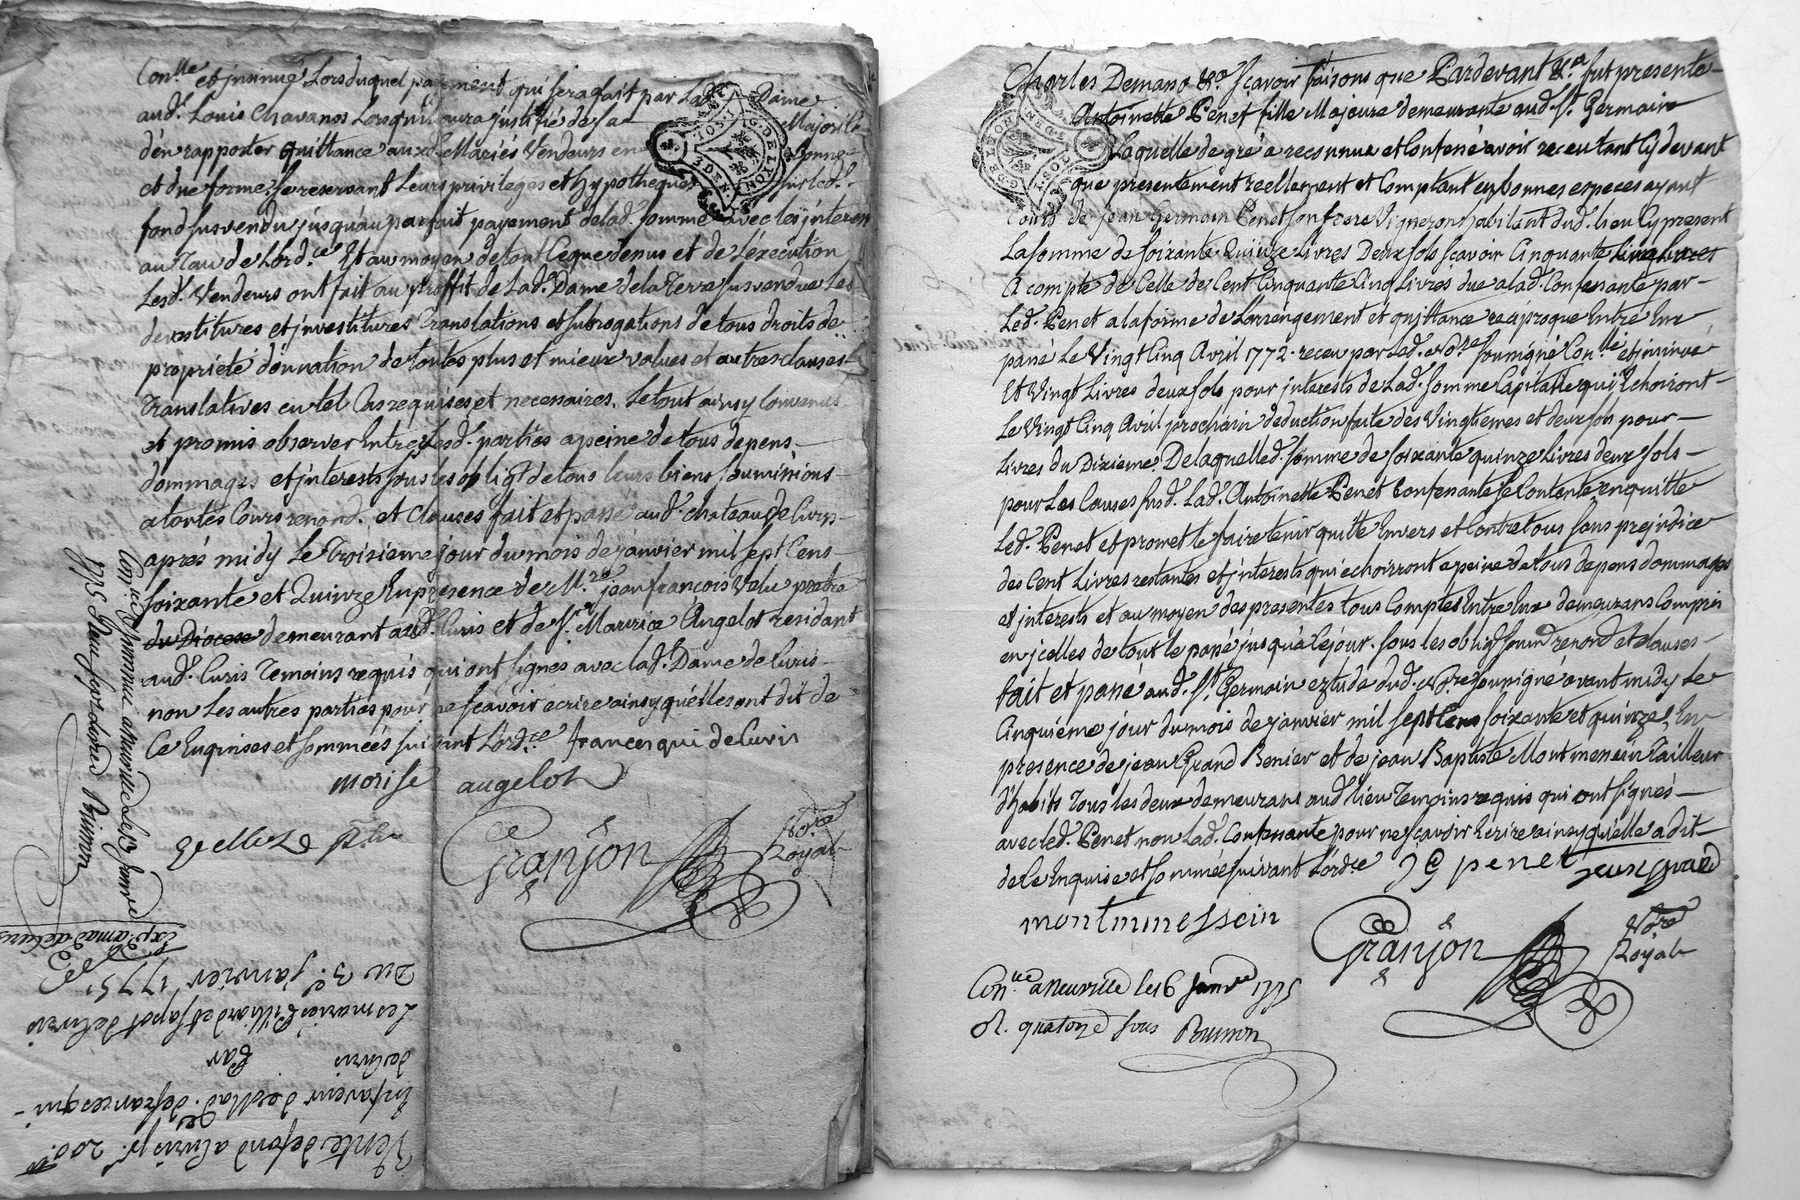 Con.lle et insinué Lors duquel payement qui sera fait par Lad. Dame
aud. Louis Chavanos Lorsqu'il aura justifié de sa Majorité
d'en rapporter quittance auxd. Mariés Vendeurs en bonne
et due forme, se reservant Leurs privileges et hypotheques sur led.
fond susvendu jusqu'au parfait payement de lad. somme avec les interets
au Tau de L'ord.ce Et au moyen de tout Ceque denus et de L'éxécution
Lesd. Vendeurs ont fait au proffit de Lad. Dame de la Terre susvendue Les
devestitures et jnvestitures Translations et subrogations de tous droits de
propriété dónnation de toutes plus et mieux values et autres clauses
Translatives en tel Cas requises et necessaires. Le tout ainsy Convenus
et promis observer Entre Lesd. parties a peine de tous depens
dommages et jnterests sous les obligõ de tous leurs biens soumissions
a toutes Cours renond. et Clauses fait et passé aud. chateau de Curis
aprés midy Le Troisieme jour du mois de janvier mil sept Cens
soixante et Quinze En presence de M.re jean françois Velu prêtre
du Diocese demeurant aud. Curis et de S.r Maurice Angelot residant
aud. Curis Temoins requis qui ont signés avec lad. Dame de Curis
non Les autres parties pour ne sçavoir écrire ainsy qu'elles ont dit de
Ce Enquises et sommées suivant L'ord.ce francesqui de Curis
morise angelot
Granjon No.re Royal
Con.lle
1775
Du 3.e janvier 1775
Les mariés Billiard et Sapot de Curis
Par
de Curis
En faveur de Mad. de francesqui
Vente de fond a Curis p.r 200.tt
Charles Demano &a. sçavoir faisons que Pardevant &a. fut presente
Antoinette Penet fille Majeure demeurante aud. S.t Germain
Laquelle de gré a reconnue et Confessé avoir receu tant cy devant
que presentement réellement et Comptant en bonnes especes ayant
Cours de jean Germain Penet son frere Vigneron habitant dud. lieu Cy present
La somme de soixante Quinze Livres Deux sols sçavoir Cinquante Cinq Livres
A compte de Celle de Cent Cinquante Cinq Livres due a lad. Confessante par
Led. Penet a la forme de L'arrangement et quittance reciproque Entre Eux
passé Le Vingt Cinq Avril 1772. receu par Led. No.re soussigné Con.lle et insinué
Et Vingt Livres deux sols pour jnterests de Lad. somme Capitalle qui Echoiront
Le Vingt Cinq Avril prochain deduction faite des Vingtiemes et deux sols pour
Livres du Dixieme. De laquelle d. somme de soixante quinze Livres deux sols
pour Les Causes susd. Lad. Antoinette Penet Confessante se Contente, en quitte
Led. Penet et promet le faire tenir quitte Envers et Contre tous sans prejudice
des Cent Livres restantes et jnterests qui echoirront a peine de tous depens dommages
et jnterests et au moyen des presentes tous Comptes Entre Eux demeurans Compris
en jcelles de tout le passé jusqu'à Ce jour. sous les obligõ soum.õ renond et clauses
fait et passé aud. S.t Germain eztude dud. No.re soussigné avant midy Le
Cinquiéme jour du mois de janvier mil sept Cens soixante et quinze, En
presence de jean Grand Benier et de jean Baptiste Montmenein Tailleur
d'habits Tous les deux demeurans aud. lieu Temoins requis qui ont signés
avec led. Penet non Lad. Confessante pour ne sçavoir Ecrire ainsy qu'elle a dit
de Ce Enquise et sommée suivant L'ord.ce J G penet jean grand
montmmessein
Granjon No.re Royal
Con.lle a Neuville le 16 Janv.r 1775
R. quatorze sous